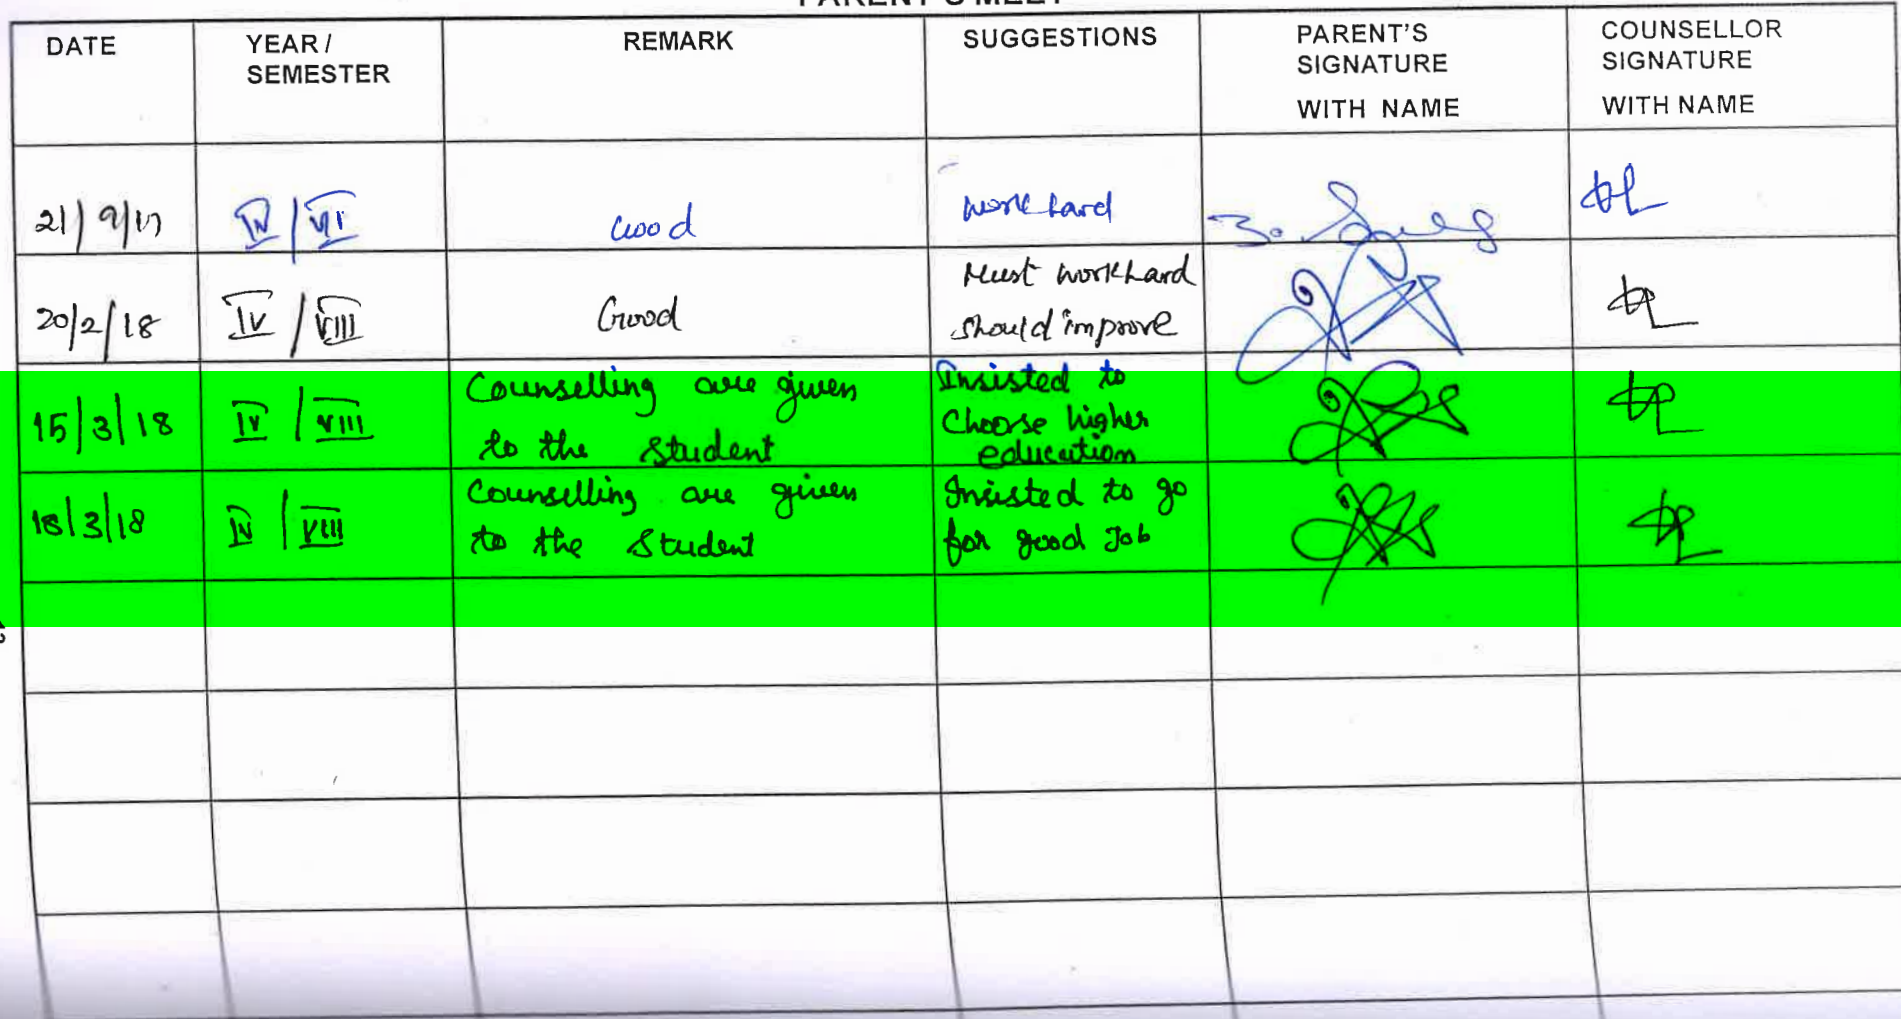 PARENT'S MEET
DATE YEAR / SEMESTER REMARK SUGGESTIONS PARENT'S SIGNATURE WITH NAME COUNSELLOR SIGNATURE WITH NAME
21/9/17 IV / VII Good work hard
20/2/18 IV / VIII Good Must work hard
should improve
15/3/18 IV / VIII Counselling are given
to the student
Insisted to
choose higher
education
18/3/18 IV / VIII Counselling are given
to the student
Insisted to go
for good Job